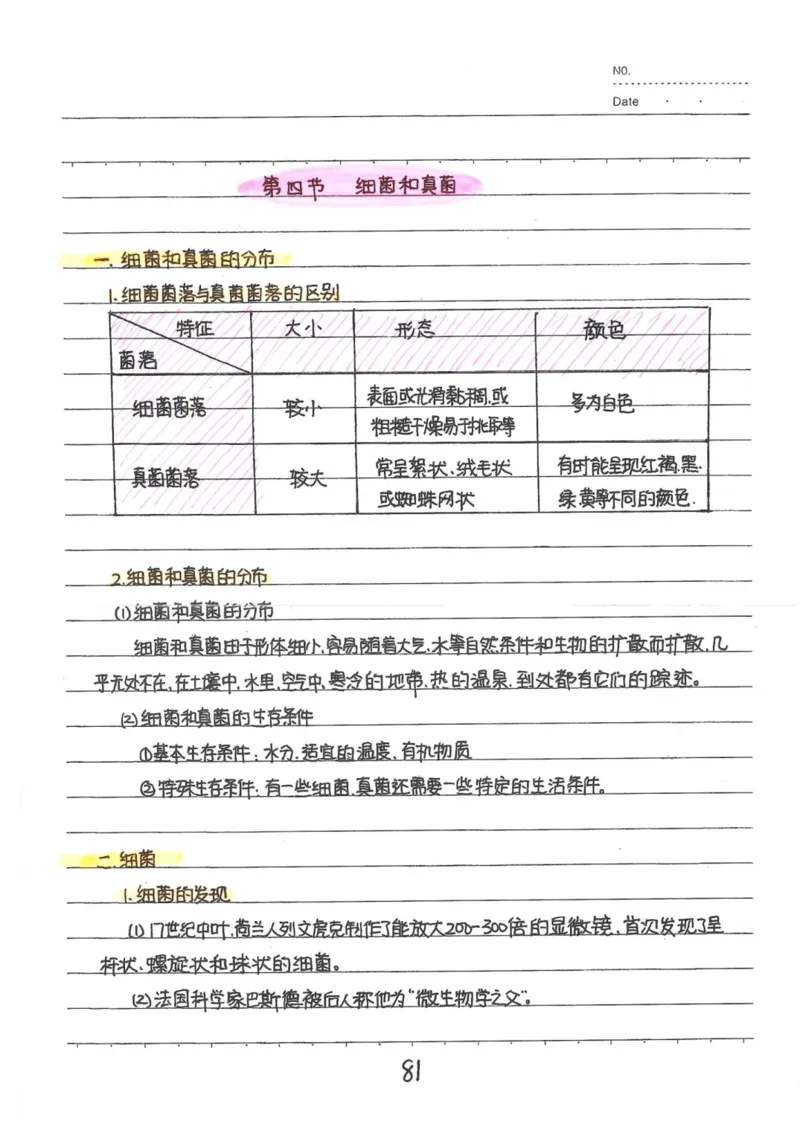 NO.
Date
第四节 细菌和真菌
一.细菌和真菌的分布
1.细菌菌落与真菌菌落的区别
特征 大小 形态 颜色
菌落
细菌菌落 较小 表面或光滑黏稠,或 多为白色
粗糙干燥易于挑取等
真菌菌落 较大 常呈絮状、绒毛状 有时能呈现红、褐、黑、
或蜘蛛网状 绿、黄等不同的颜色.
2.细菌和真菌的分布
(1)细菌和真菌的分布
细菌和真菌由于形体细小,容易随着大气、水等自然条件和生物的扩散而扩散,几
乎无处不在,在土壤中,水里,空气中,寒冷的地带、热的温泉、到处都有它们的踪迹。
(2)细菌和真菌的生存条件
①基本生存条件:水分、适宜的温度、有机物质
②特殊生存条件:有一些细菌、真菌还需要一些特定的生活条件。
二.细菌
1.细菌的发现
(1)17世纪中叶,荷兰人列文虎克制作了能放大200-300倍的显微镜、首次发现了呈
杆状、螺旋状和球状的细菌。
(2)法国科学家巴斯德被后人称他为“微生物学之父”。
81